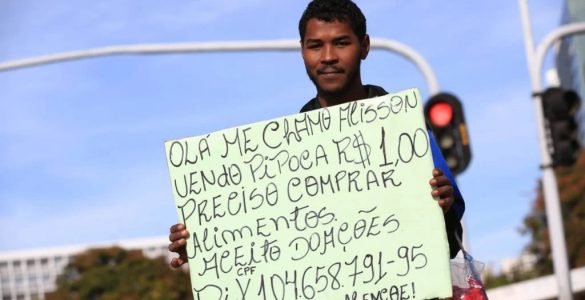 OLÁ ME CHAMO ALISSON
VENDO PIPOCA R$ 1,00
PRECISO COMPRAR
ALIMENTOS.
ACEITO DOAÇÕES
CPF
PIX 104.658.791-95